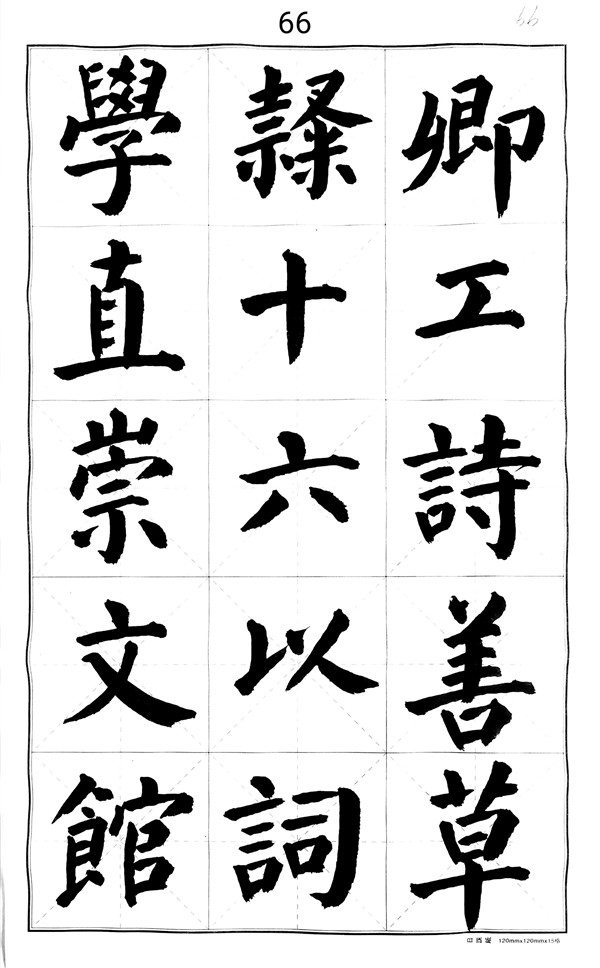 66
66
卿工詩善草
隸十六以詞
學直崇文館
120mmx120mmx15格